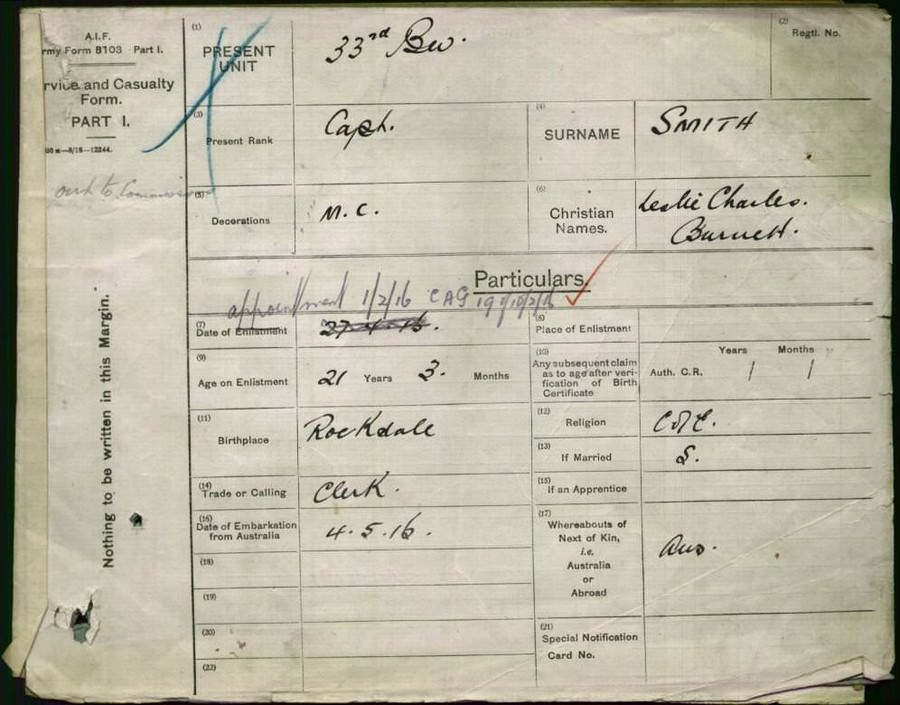 A.I.F.
rmy Form B103 Part I.
rvice and Casualty
Form.
PART I.
(1)
PRESENT
UNIT
33rd Bn.
(2)
Regtl. No.
(3)
Present Rank
Capt.
(4)
SURNAME
SMITH
(5)
Decorations
M.C.
(6)
Christian
Names.
Leslie Charles.
Burnett.
Particulars.
appointment 1/2/16 CAG
(7)
Date of Enlistment
27.4.16.
(8)
Place of Enlistment
(9)
Age on Enlistment
21 Years 3. Months
(10)
Any subsequent claim
as to age after veri-
fication of Birth
Certificate
Years Months
Auth. C.R. / /
(11)
Birthplace
Rockdale
(12)
Religion
C of E.
(13)
If Married
S.
(14)
Trade or Calling
Clerk.
(15)
If an Apprentice
(16)
Date of Embarkation
from Australia
4.5.16.
(17)
Whereabouts of
Next of Kin,
i.e.
Australia
or
Abroad
Aus.
(18)
(19)
(20)
(21)
Special Notification
Card No.
(22)
Nothing to be written in this Margin.